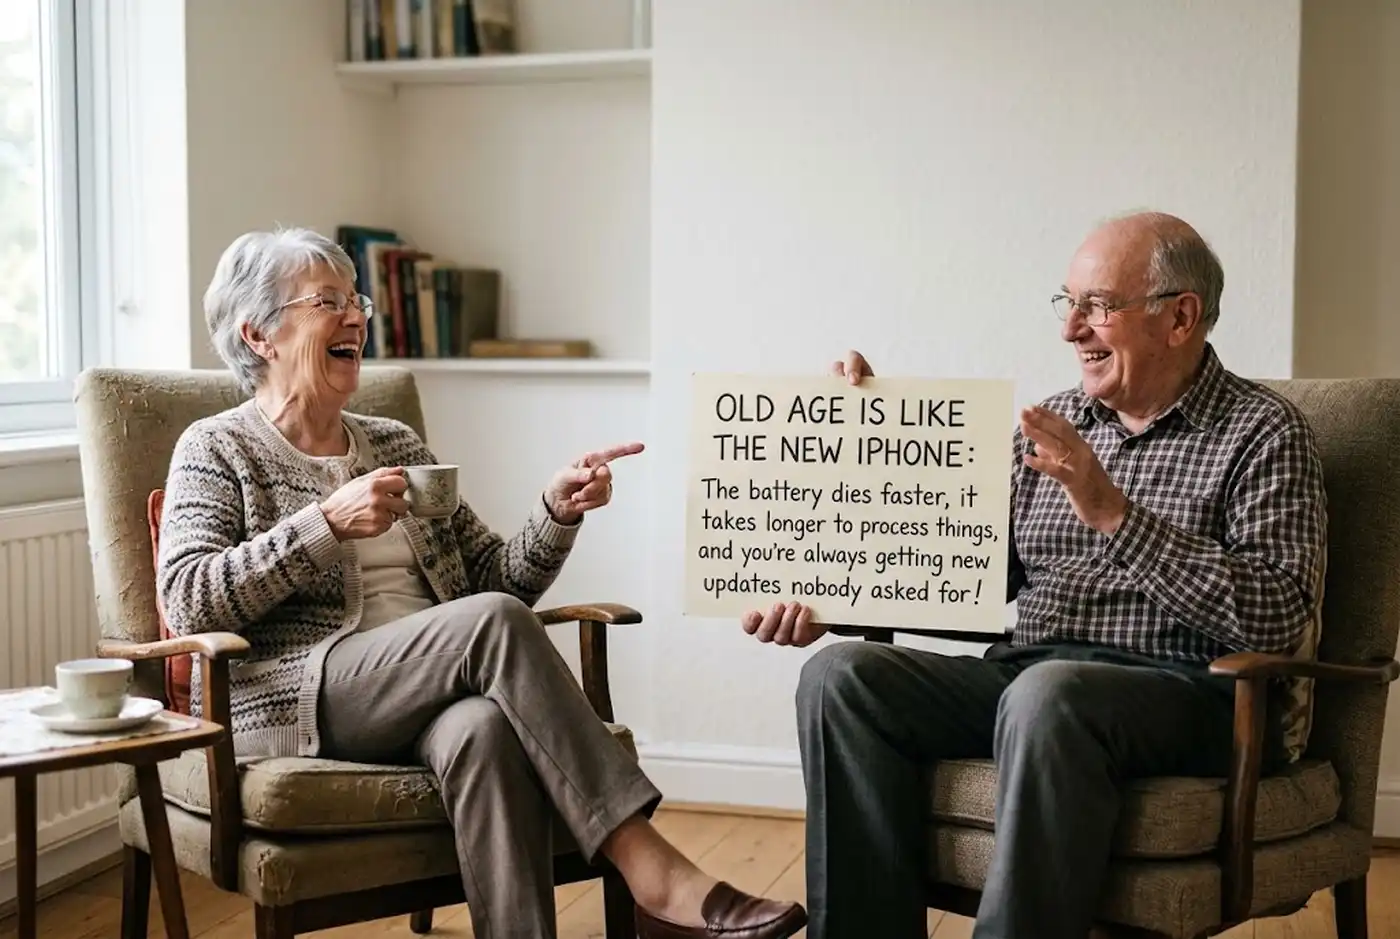 OLD AGE IS LIKE
THE NEW IPHONE:
The battery dies faster, it
takes longer to process things,
and you're always getting new
updates nobody asked for!